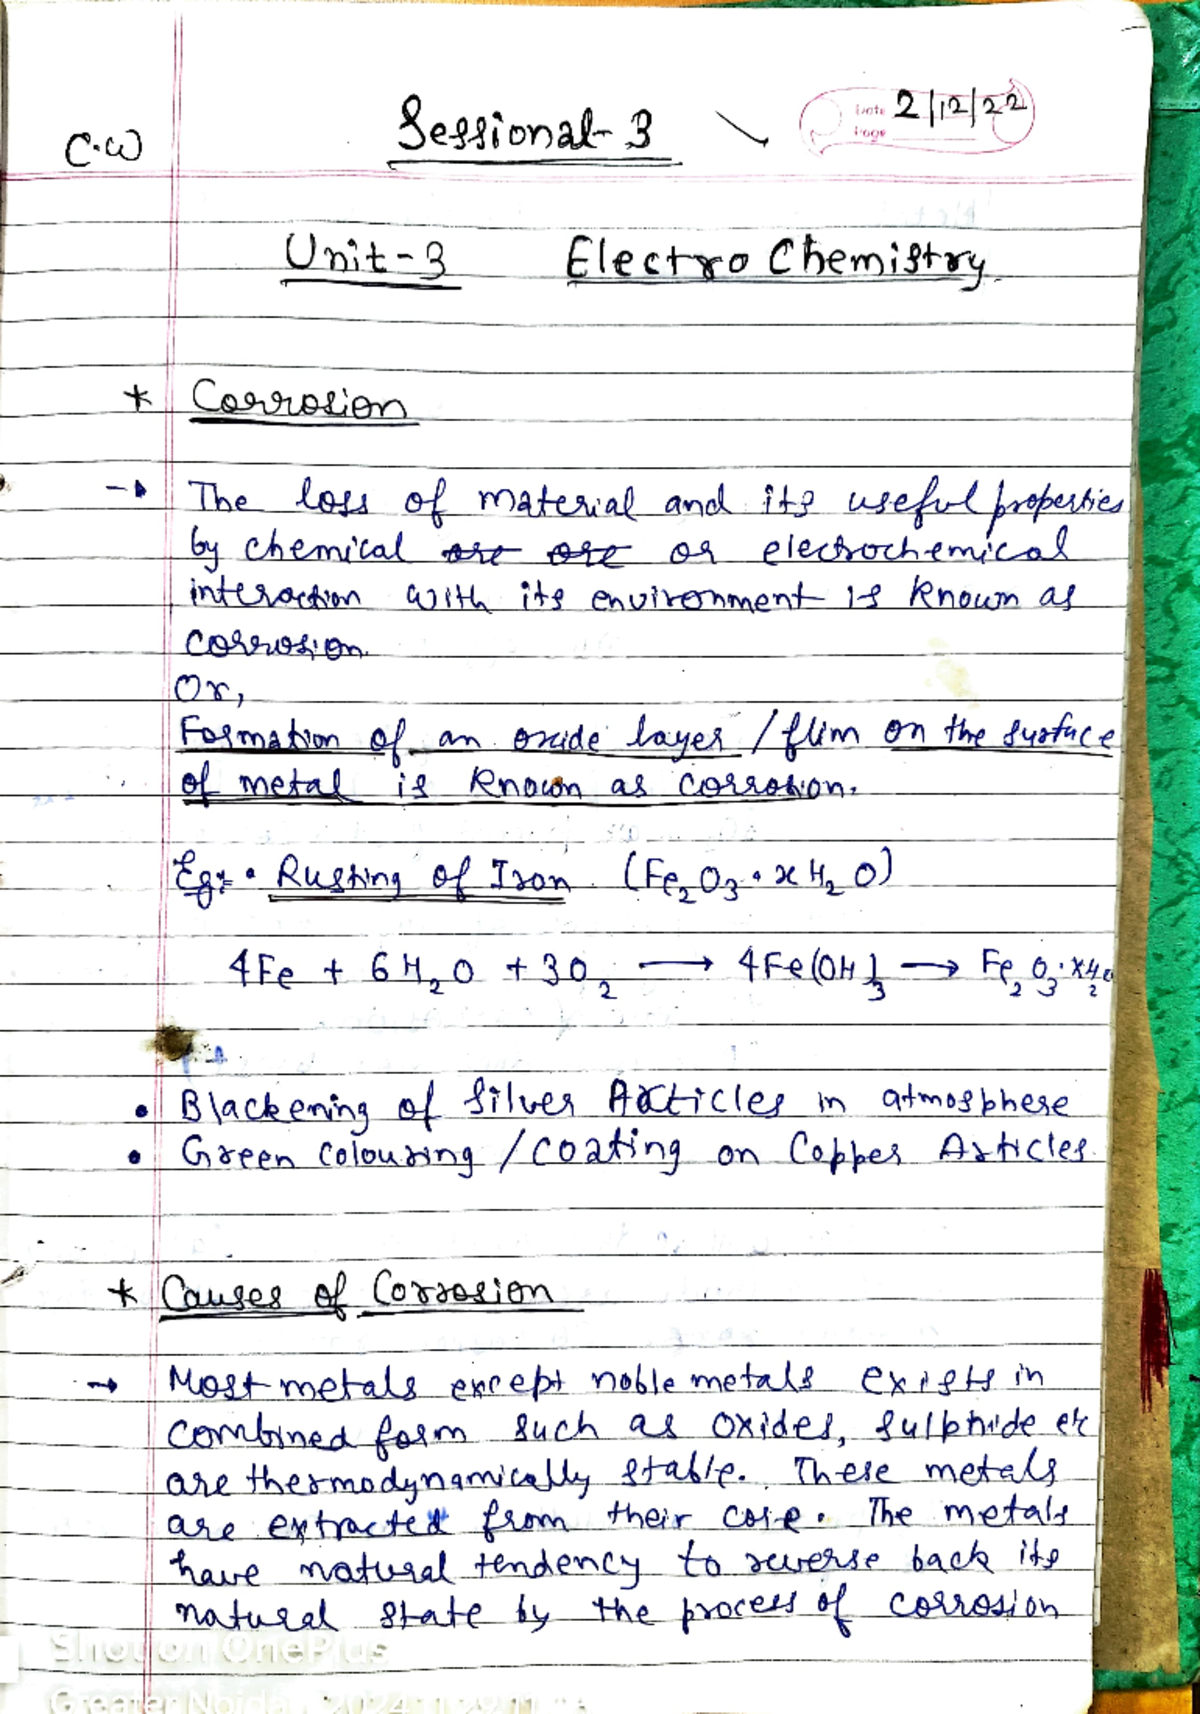 C.W
Sessional-3
Date 2/12/22
Page
Unit-3 Electro Chemistry
* Corrosion
→ The loss of material and its useful properties
by chemical are ore or electrochemical
interaction with its environment is known as
corrosion.
Or,
Formation of an oxide layer / flim on the surface
of metal is known as corrosion.
Eg:- • Rusting of Iron (Fe₂O₃·xH₂O)
4Fe + 6H₂O + 3O₂ → 4Fe(OH)₃ → Fe₂O₃·xH₂O
• Blackening of Silver Articles in atmosphere
• Green colouring / coating on Copper Articles.
* Causes of Corrosion
→ Most metals except noble metals exists in
combined form such as oxides, sulphide etc
are thermodynamically stable. These metals
are extracted from their core. The metals
have natural tendency to reverse back its
natural state by the process of corrosion
Shot on OnePlus
Greater Noida